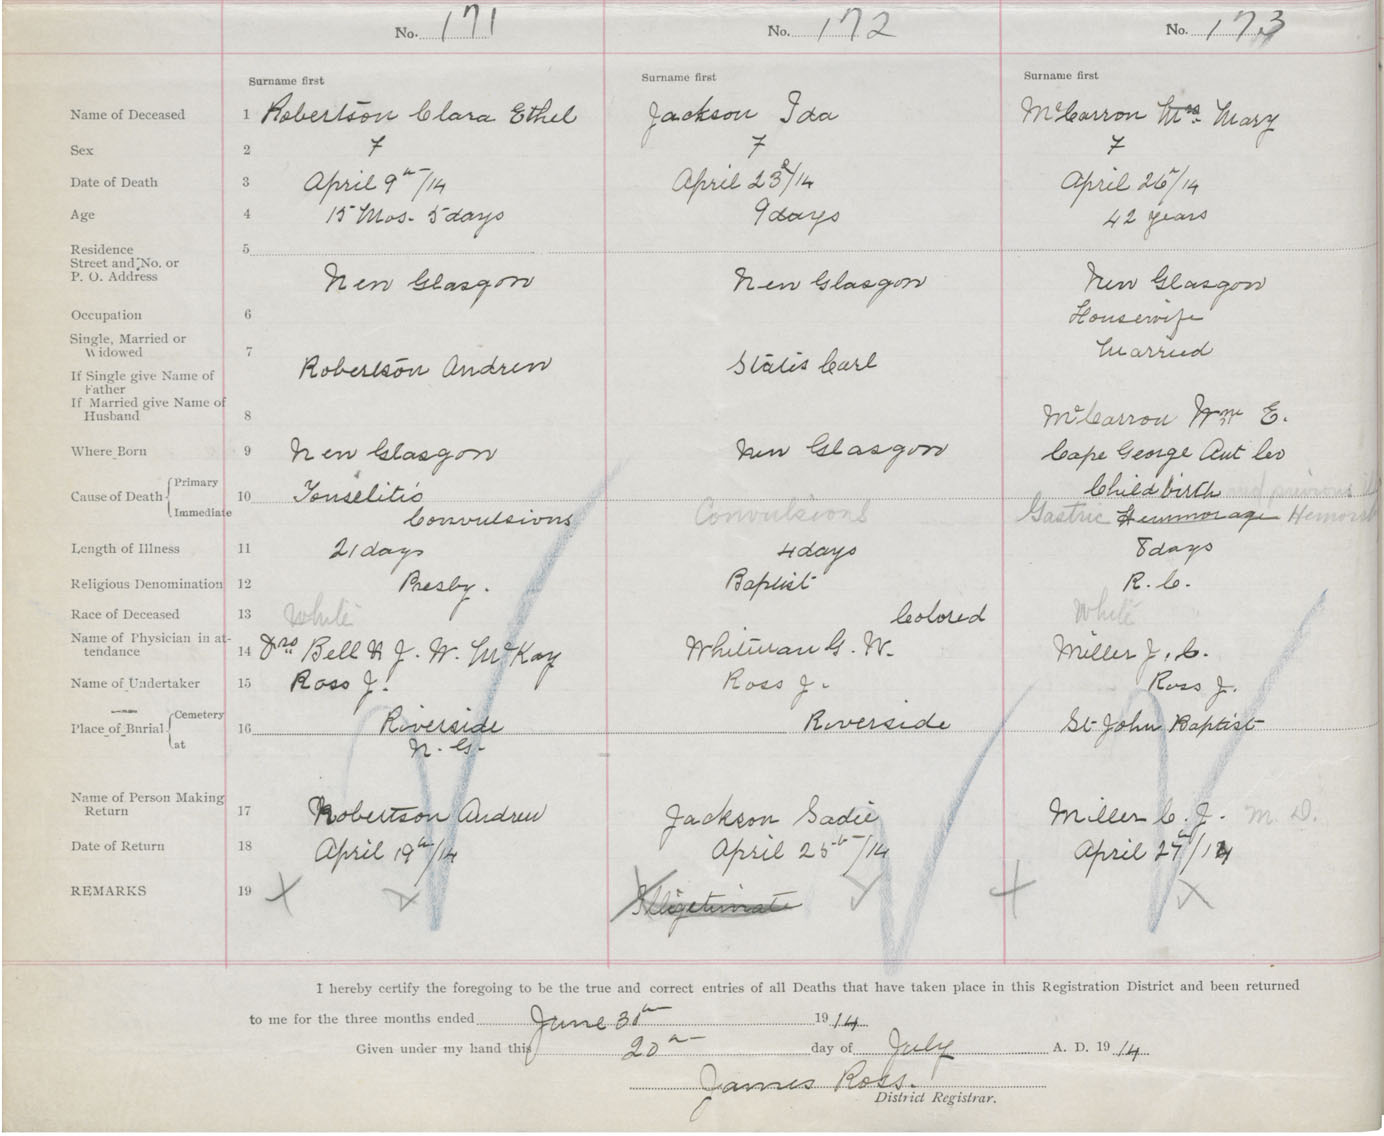 No. 171 No. 172 No. 173
Surname first Surname first Surname first
Name of Deceased 1 Robertson Clara Ethel Jackson Ida McCarron Mrs. Mary
Sex 2 F F F
Date of Death 3 April 9th/14 April 23d/14 April 26th/14
Age 4 15 Mos. 5 days 9 days 42 years
Residence 5
Street and No. or
P. O. Address New Glasgow New Glasgow New Glasgow
Occupation 6 Housewife
Single, Married or
Widowed 7 Married
If Single give Name of
Father Robertson Andrew Carl
If Married give Name of
Husband 8 McCarron Wm E.
Where Born 9 New Glasgow New Glasgow Cape George Ant Co
Cause of Death Primary 10 Tonselitis Childbirth and previous
Immediate Convulsions Convulsions Gastric Hemmorage
Length of Illness 11 21 days 4 days 8 days
Religious Denomination 12 Presby. Baptist R. C.
Race of Deceased 13 White Colored White
Name of Physician in at-
tendance 14 Drs Bell & J. W. McKay Whitman G. W. Miller J. C.
Name of Undertaker 15 Ross J. Ross J. Ross J.
Place of Burial Cemetery 16 Riverside Riverside St John Baptist
at N. G.
Name of Person Making
Return 17 Robertson Andrew Jackson Sadie Miller C. J. M. D.
Date of Return 18 April 19th/14 April 25th/14 April 27th/14
REMARKS 19 Illigetimate
I hereby certify the foregoing to be the true and correct entries of all Deaths that have taken place in this Registration District and been returned
to me for the three months ended June 30th 1914
Given under my hand this 20th day of July A. D. 1914
James Ross.
District Registrar.